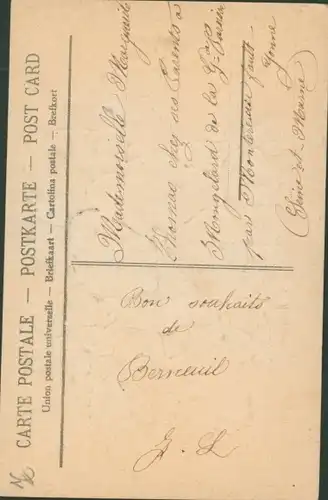 CARTE POSTALE — POSTKARTE — POST CARD
Union postale universelle — Briefkaart — Cartolina postale — Brefkort
Mademoiselle
Thomas chez ses Parents à
de la
par Montereau faute
Yonne
(Seine et Marne)
Bon souhaits
de
Berneuil
G. L